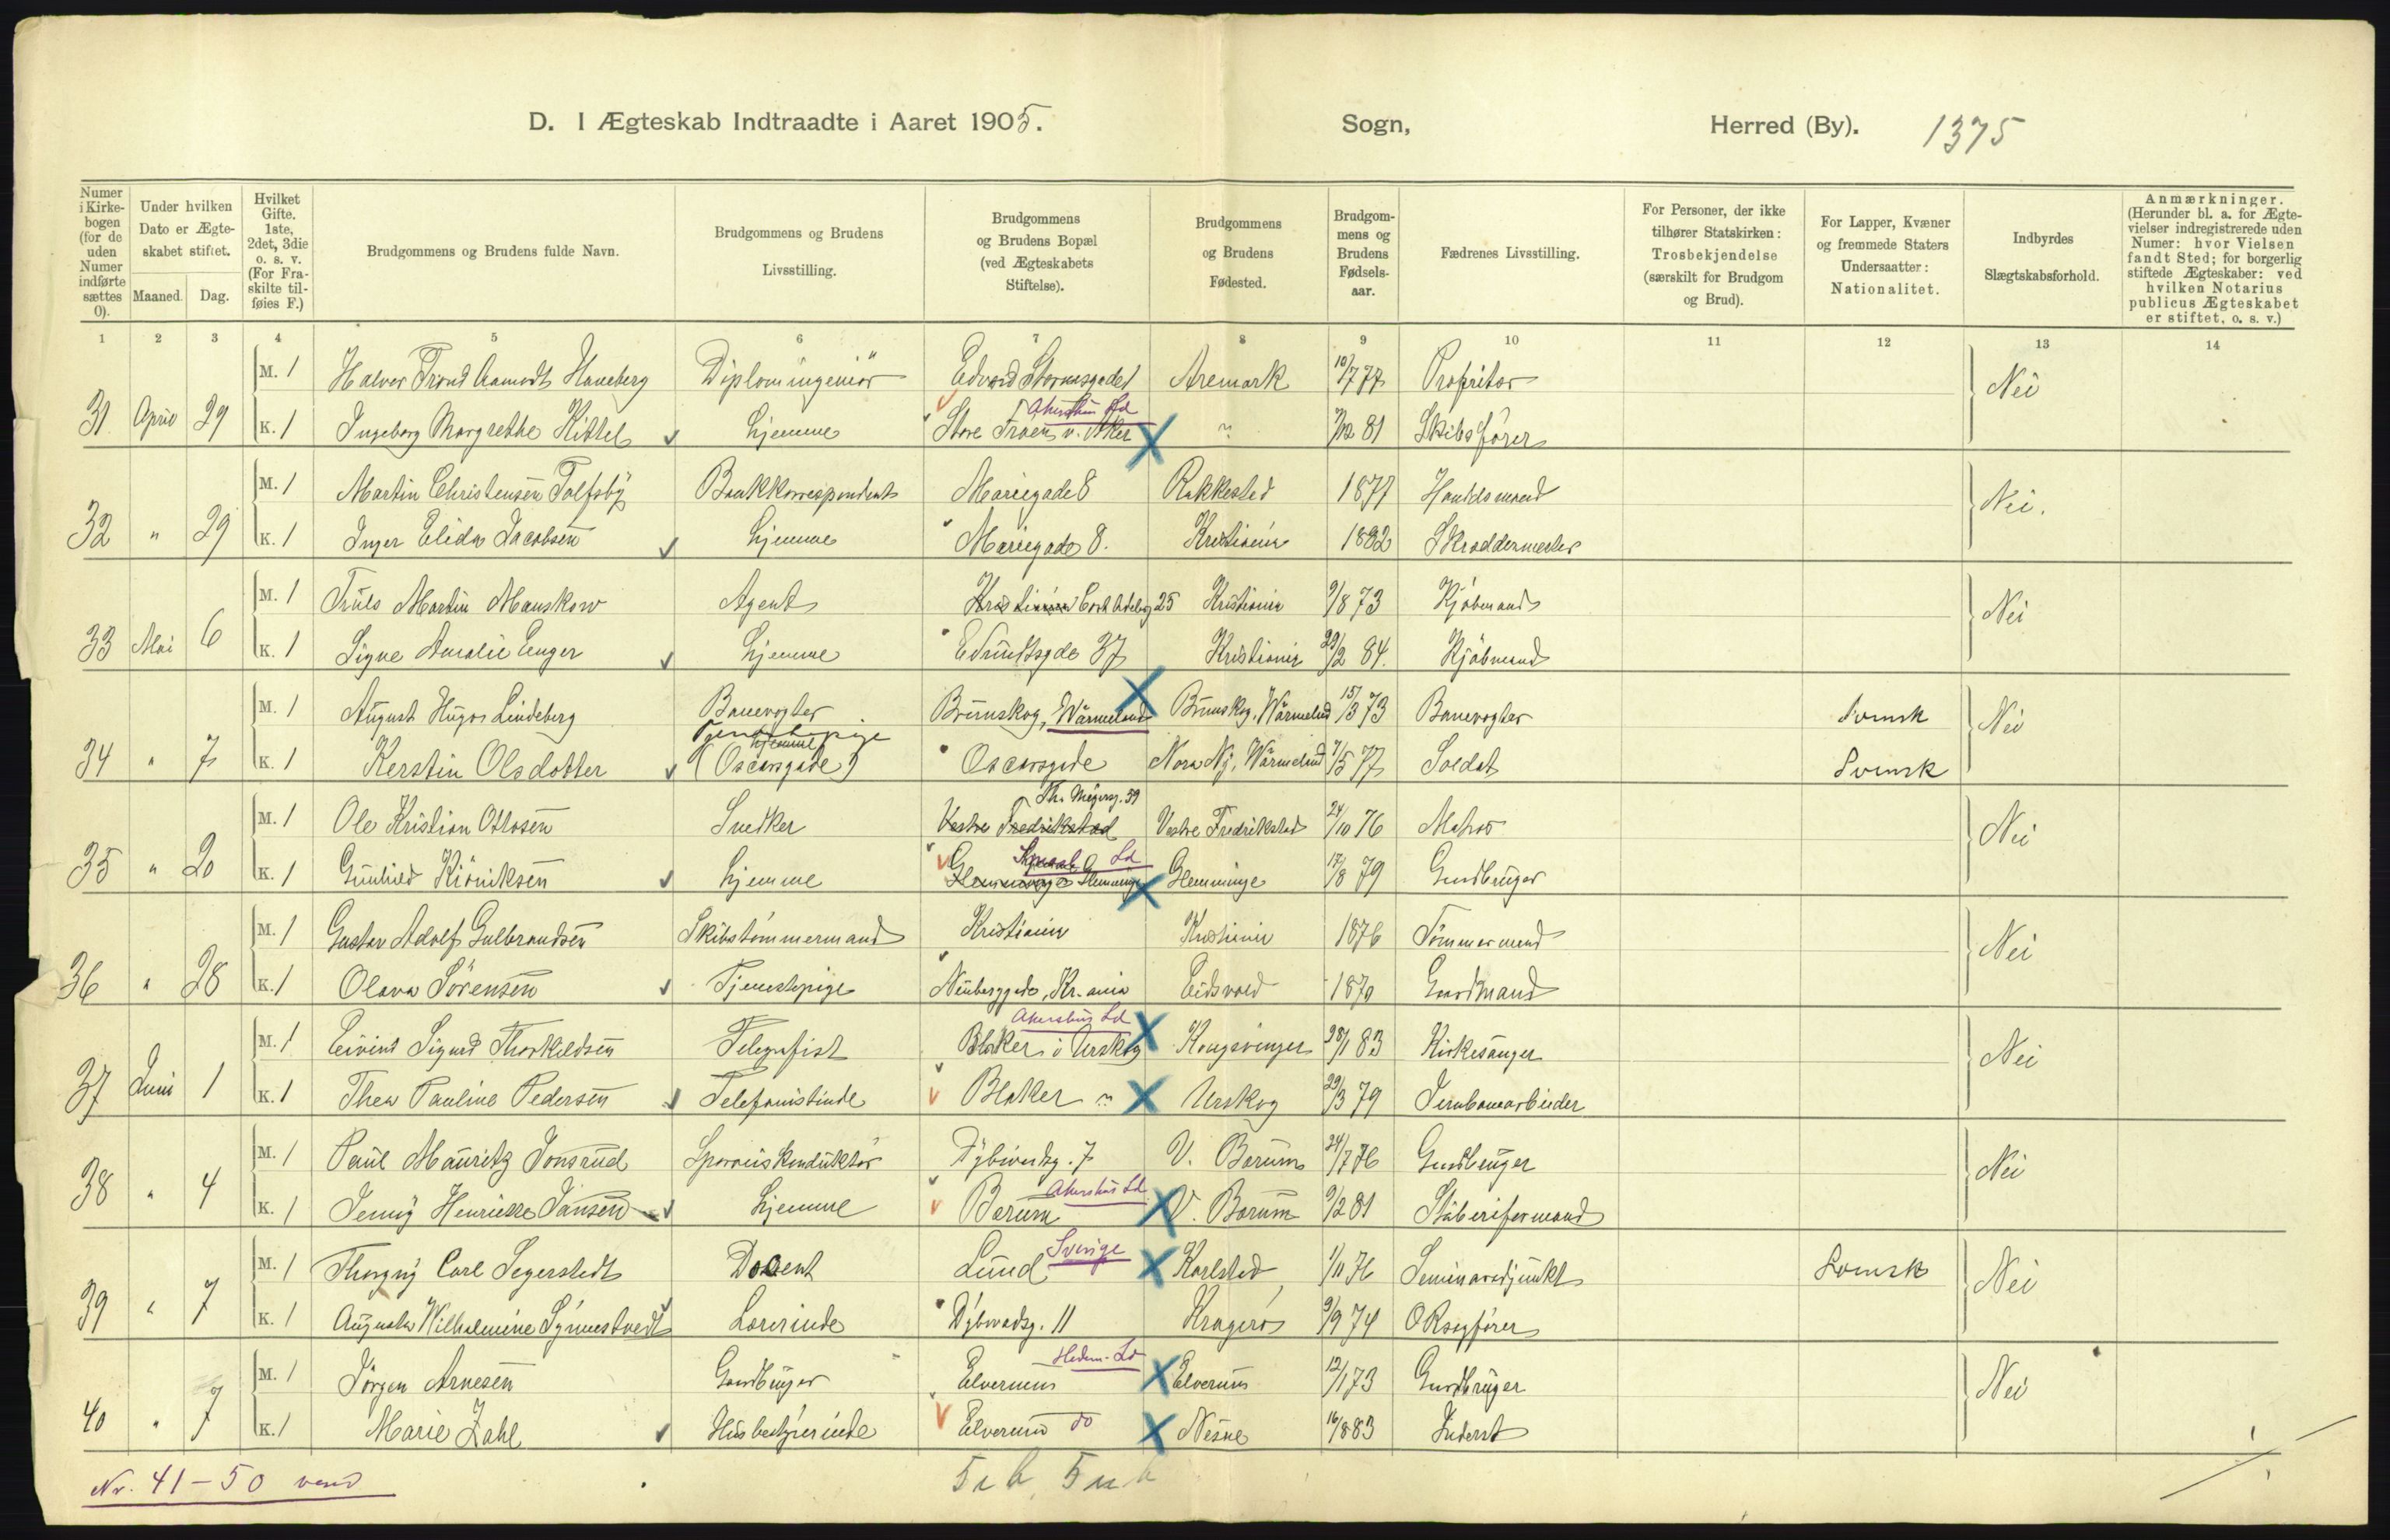 D. I Ægteskab Indtraadte i Aaret 1905. Sogn, Herred (By). 1375
Numer i Kirke-bogen (for de uden Numer indførte sættes 0).
Under hvilken Dato er Ægte-skabet stiftet. Maaned. Dag.
Hvilket Gifte. 1ste, 2det, 3die o. s. v. (For Fra-skilte til-føies F.)
Brudgommens og Brudens fulde Navn.
Brudgommens og Brudens Livsstilling.
Brudgommens og Brudens Bopæl (ved Ægteskabets Stiftelse).
Brudgommens og Brudens Fødested.
Brudgom-mens og Brudens Fødsels-aar.
Fædrenes Livsstilling.
For Personer, der ikke tilhører Statskirken: Trosbekjendelse (særskilt for Brudgom og Brud).
For Lapper, Kvæner og fremmede Staters Undersaatter: Nationalitet.
Indbyrdes Slægtskabsforhold.
Anmærkninger. (Herunder bl. a. for Ægte-vielser indregistrerede uden Numer: hvor Vielsen fandt Sted; for borgerlig stiftede Ægteskaber: ved hvilken Notarius publicus Ægteskabet er stiftet, o. s. v.)
1 2 3 4 5 6 7 8 9 10 11 12 13 14
M. 1 Halvor Trond Aamodt Haneberg Diplomingeniör Edvard Stormsgade 1 Aremark 10/7 77 Propritær Nei
Akershus Ld
31 April 29 K. 1 Ingeborg Margrethe Kittel hjemme Store Froen v. Aker " 7/12 81 Skibsfører
M. 1 Martin Christensen Tolfsby Bankkorrespondent Mariegade 8 Rakkestad 1877 Handdsmand Nei.
32 " 29 K. 1 Inger Elida Jacobsen hjemme Mariegade 8. Kristiania 1882 Skræddermester
M. 1 Truls Martin Manskow Agent Kristiania Cort Adelersg 25 Kristiania 9/8 73 Kjøbmand Nei
33 Mai 6 K. 1 Signe Amalie Enger hjemme Eilertsgde 37 Kristiania 29/2 84. Kjøbmand
M. 1 August Hugo Lindeberg Banevogter Brunskog, Wärmeland Brunskog, Wärmeland 15/3 73 Banevogter Svensk Nei
Tjenestepige
hjemme
34 " 7 K. 1 Kerstin Olsdotter (Oscarsgade) Oscarsgade Nora Nj, Wärmeland 7/5 77 Soldat Svensk
Th. Meyersg. 59
M. 1 Ole Kristian Ottosen Snedker Vestre Fredrikstad Vestre Fredrikstad 24/10 76 Matros Nei
Smaal. Ld
35 " 20 K. 1 Gunhild Kröniksen hjemme Glemminge Glemminge Glemminge 17/8 79 Gaardbruger
M. 1 Gustav Adolf Gulbrandsen Skibstömmermand Kristiania Kristiania 1876 Tömmermand Nei
36 " 28 K. 1 Olava Sørensen Tjenestepige Neuberggade, Kr.ania Eidsvold 1870 Gaardmand
Akershus Ld
M. 1 Eivind Sigurd Thorkildsen Telegrafist Blaker i Urskog Kongsvinger 28/1 83 Kirkesanger Nei
37 Juni 1 K. 1 Thea Pauline Pedersen Telefonistinde Blaker " Urskog 29/3 79 Jernbanearbeider
M. 1 Paul Mauritz Jonsrud Sporveiskonduktør Dybvadsg. 7 V. Bærum 24/7 76 Gaardbruger Nei
Akershus Ld
38 " 4 K. 1 Jenny Henriette Jansen hjemme Bærum V. Bærum 9/2 81 Støberiformand
Sverige
M. 1 Thorgny Carl Segerstedt Docent Lund Karlstad 1/11 76 Seminaradjunkt Svensk Nei
39 " 7 K. 1 Augusta Wilhelmine Synnestvedt Lærerinde Dybvadsg. 11 Kragerø 9/9 74 O Rsagfører
Hedem. Ld
M. 1 Jörgen Arnesen Gaardbruger Elverum Elverum 12/1 73 Gaardbruger Nei
40 " 7 K. 1 Marie Zahl Husbestyrerinde Elverum do Nesne 16/8 83 Inderst
Nr. 41-50 vend